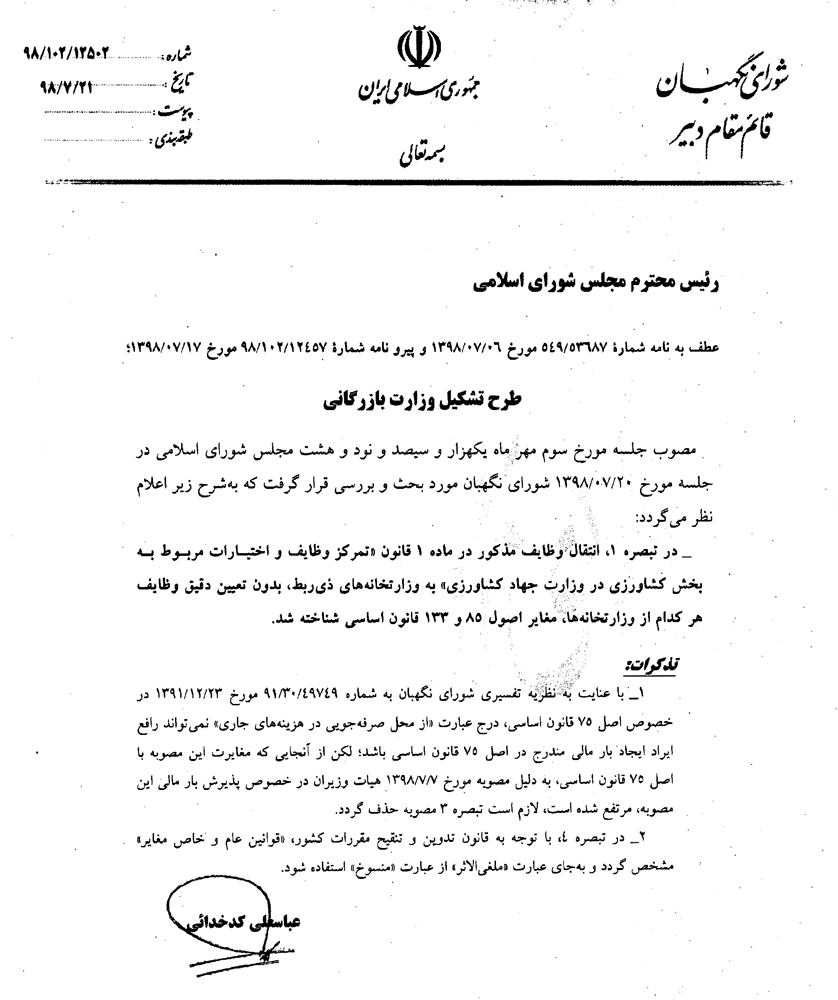 شورای نگهبان
قائم مقام دبیر
جمهوری اسلامی ایران
بسمه تعالی
شماره: ۹۸/۱۰۲/۱۲۵۰۲
تاریخ: ۹۸/۷/۲۱
پیوست:
طبقه‌بندی:
رئیس محترم مجلس شورای اسلامی
عطف به نامه شمارهٔ ۵۴۹/۵۳۶۸۷ مورخ ۱۳۹۸/۰۷/۰۶ و پیرو نامه شمارهٔ ۹۸/۱۰۲/۱۲۴۵۷ مورخ ۱۳۹۸/۰۷/۱۷؛
طرح تشکیل وزارت بازرگانی
مصوب جلسه مورخ سوم مهر ماه یکهزار و سیصد و نود و هشت مجلس شورای اسلامی در
جلسه مورخ ۱۳۹۸/۰۷/۲۰ شورای نگهبان مورد بحث و بررسی قرار گرفت که به‌شرح زیر اعلام
نظر می‌گردد:
_ در تبصره ۱، انتقال وظایف مذکور در ماده ۱ قانون «تمرکز وظایف و اختیارات مربوط به
بخش کشاورزی در وزارت جهاد کشاورزی» به وزارتخانه‌های ذی‌ربط، بدون تعیین دقیق وظایف
هر کدام از وزارتخانه‌ها، مغایر اصول ۸۵ و ۱۳۳ قانون اساسی شناخته شد.
تذکرات:
۱_ با عنایت به نظریه تفسیری شورای نگهبان به شماره ۹۱/۳۰/۴۹۷۴۹ مورخ ۱۳۹۱/۱۲/۲۳ در
خصوص اصل ۷۵ قانون اساسی، درج عبارت «از محل صرفه‌جویی در هزینه‌های جاری» نمی‌تواند رافع
ایراد ایجاد بار مالی مندرج در اصل ۷۵ قانون اساسی باشد؛ لکن از آنجایی که مغایرت این مصوبه با
اصل ۷۵ قانون اساسی، به دلیل مصوبه مورخ ۱۳۹۸/۷/۷ هیات وزیران در خصوص پذیرش بار مالی این
مصوبه، مرتفع شده است، لازم است تبصره ۳ مصوبه حذف گردد.
۲_ در تبصره ٤، با توجه به قانون تدوین و تنقیح مقررات کشور، «قوانین عام و خاص مغایر»
مشخص گردد و به‌جای عبارت «ملغی‌الاثر» از عبارت «منسوخ» استفاده شود.
عباسعلی کدخدائی